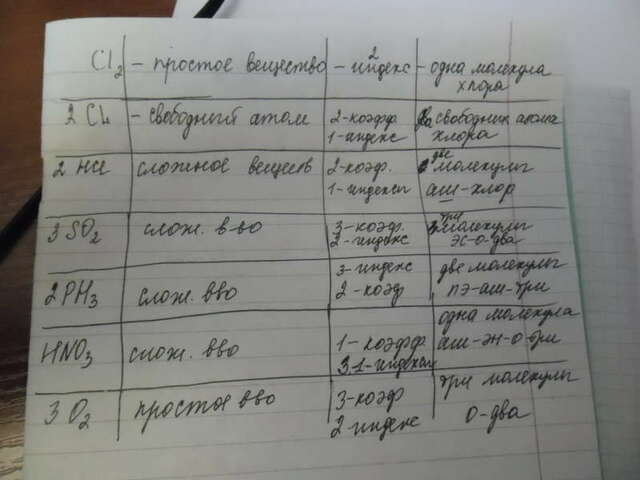 Cl₂ – простое вещество – 2 индекс – одна молекула
хлора
2 Cl – свободный атом 2-коэфф два свободных атома
1-индекс хлора
2 HCl сложное веществ 2-коэф. две молекулы
1-индексы аш-хлор
3 SO₂ слож. в-во 3-коэф. три молекулы
2-индекс эс-о-два
3-индекс две молекулы
2PH₃ слож. вво 2-коэф пэ-аш-три
одна молекула
HNO₃ слож. вво 1-коэфф аш-эн-о-три
3.1-индексы
3 O₂ простое вво 3-коэф три молекулы
2 индекс о-два